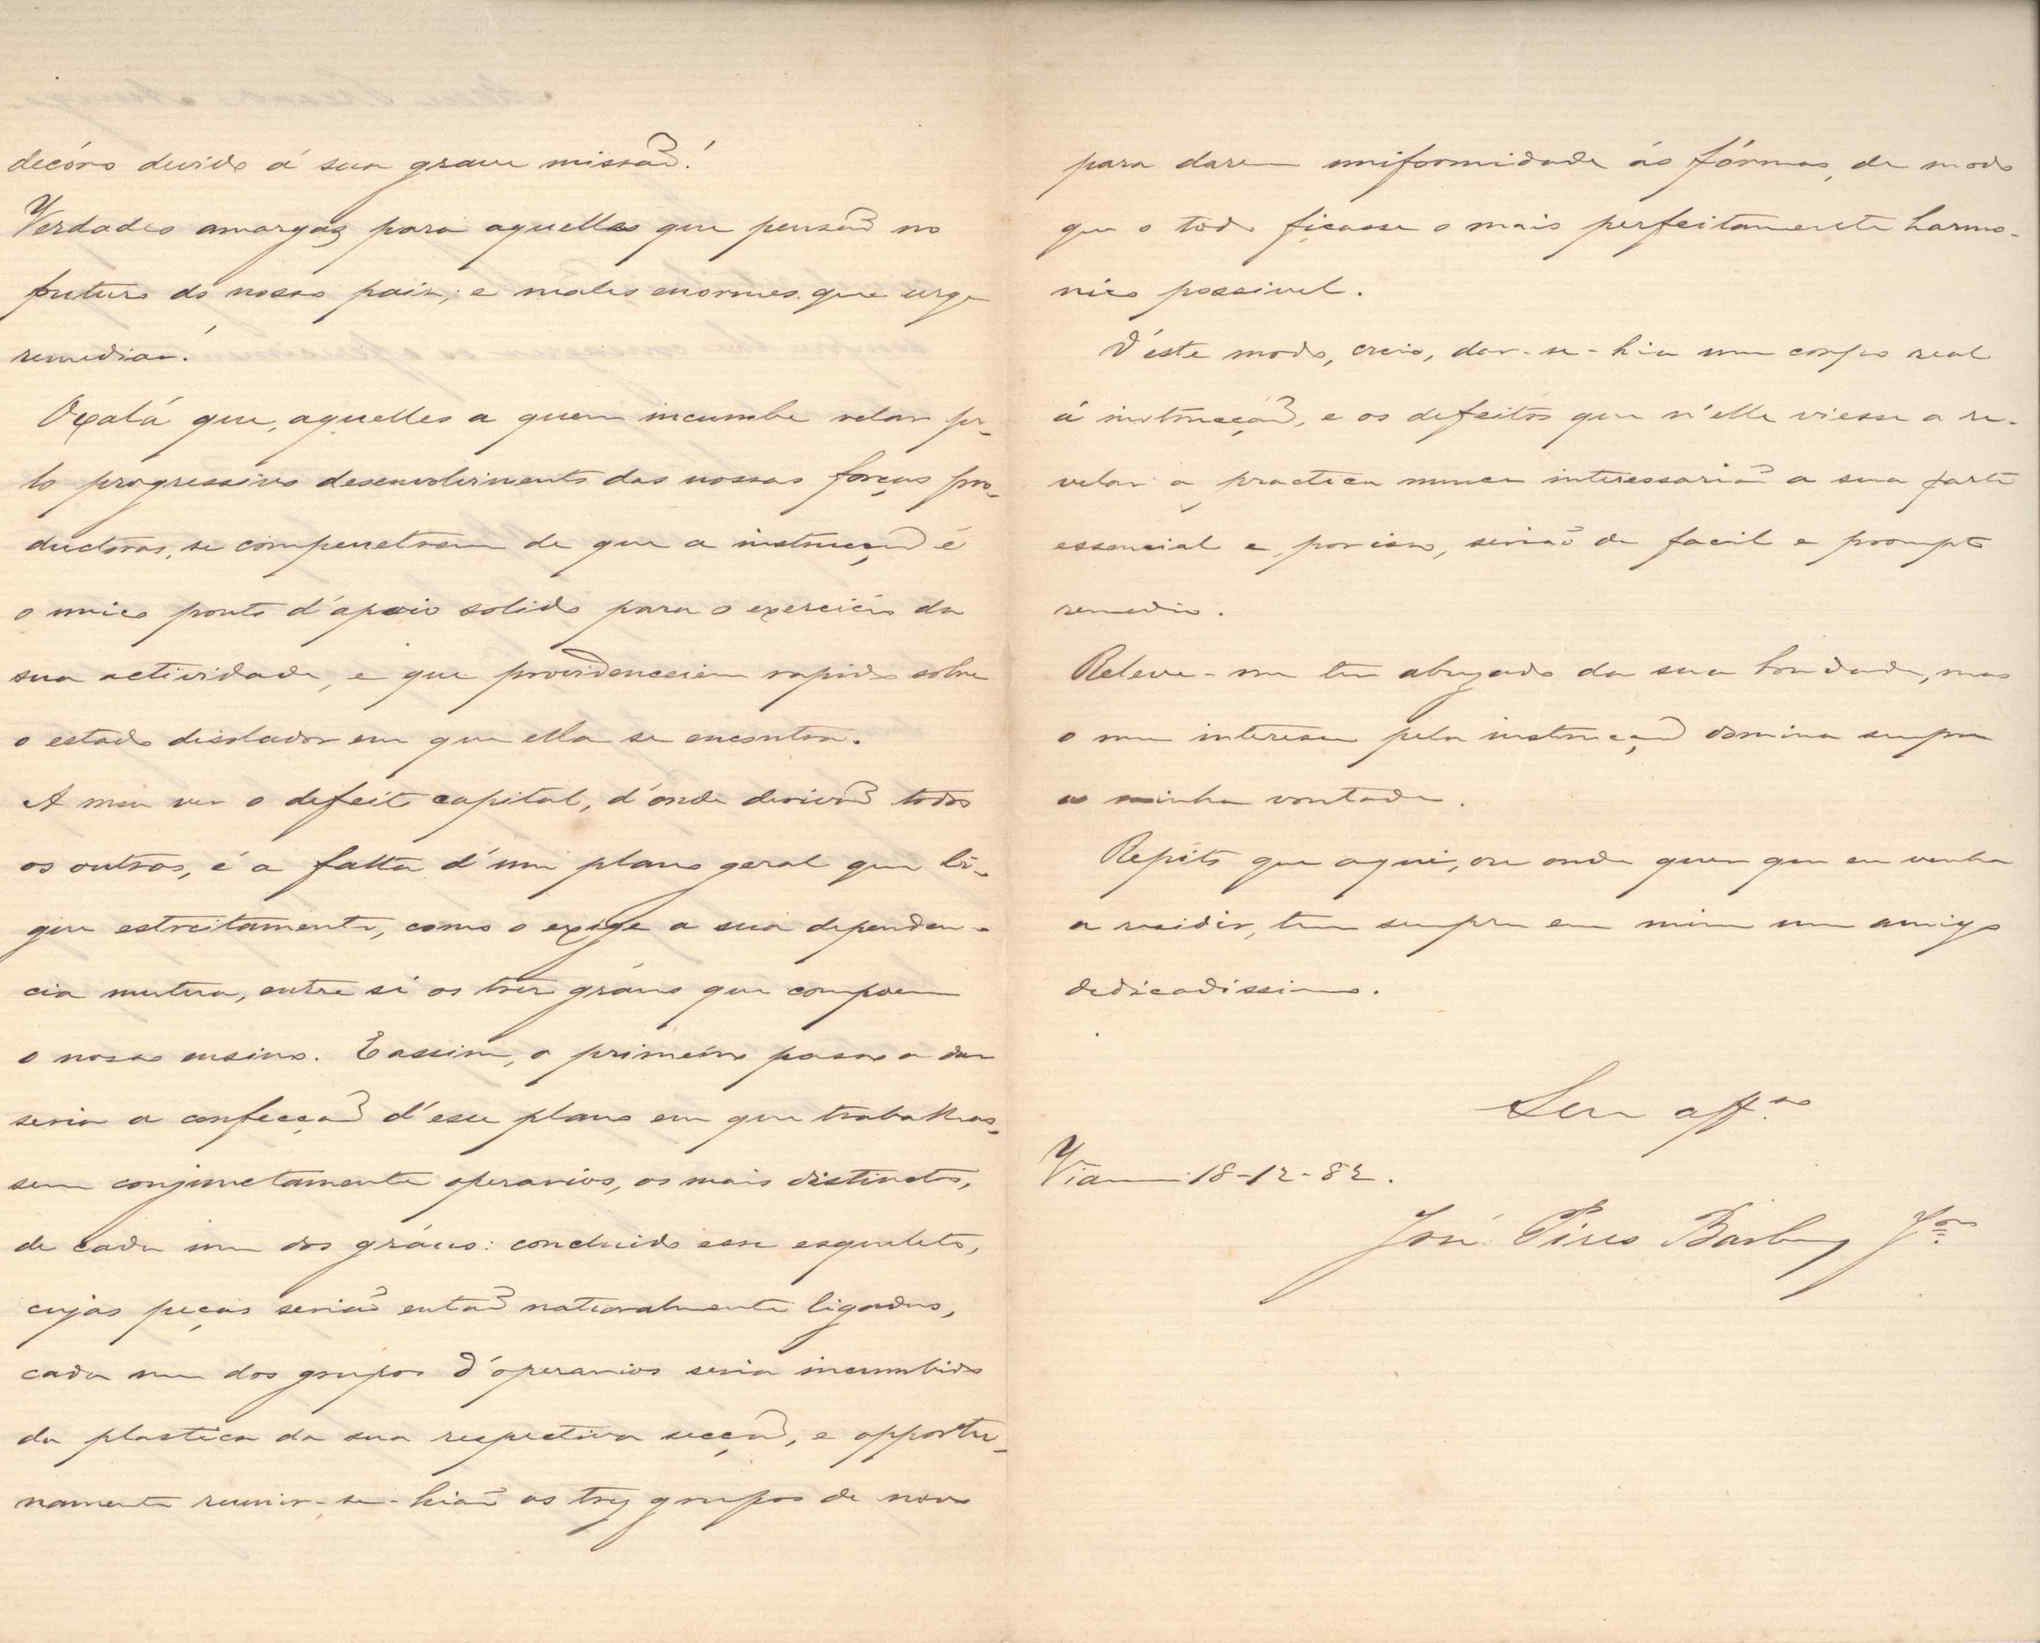 decóro devido á sua grave missão!
Verdades amargas para aquelles que pensão no
futuro do nosso paiz, e males enormes que urge
remediar!
Oxalá que, aquelles a quem incumbe velar pe-
lo progressivo desenvolvimento das nossas forças pro-
ductoras, se compenetrem de que a instrucção é
o unico ponto d'apoio solido para o exercicio da
sua actividade, e que providenceiem rapido sobre
o estado disolador em que ella se encontra.
A meu ver o defeito capital, d'onde derivão todos
os outros, é a falta d'um plano geral que li-
gue estreitamente, como o exige a sua dependen-
cia mutua, entre si os tres gráus que compoem
o nosso ensino. E assim, o primeiro passo a dar
seria a confecção d'esse plano em que trabalhas-
sem conjunctamente operarios, os mais distinctos,
de cada um dos gráus: concluido esse esqueleto,
cujas peças serião então naturalmente ligadas,
cada um dos grupos d'operarios seria incumbido
da plastica da sua respectiva secção, e opportu-
namente reunir-se-hião os trez grupos de novo
para darem uniformidade ás fórmas, de modo
que o todo ficasse o mais perfeitamente harmo-
nico possivel.
D'este modo, creio, dar-se-hia um corpo real
á instrucção, e os defeitos que n'elle viesse a re-
velar a practica nunca interessarião a sua parte
essencial e, por isso, serião de facil e prompto
remedio.
Releve-me ter abuzado da sua bondade, mas
o meu interesse pela instrucção domina sempre
a minha vontade.
Repito que aqui, ou onde quer que eu venha
a residir, tem sempre em mim um amigo
dedicadissimo.
Seu aff.mo
Vianna 18-12-82.
José Pires Barbosa J.or